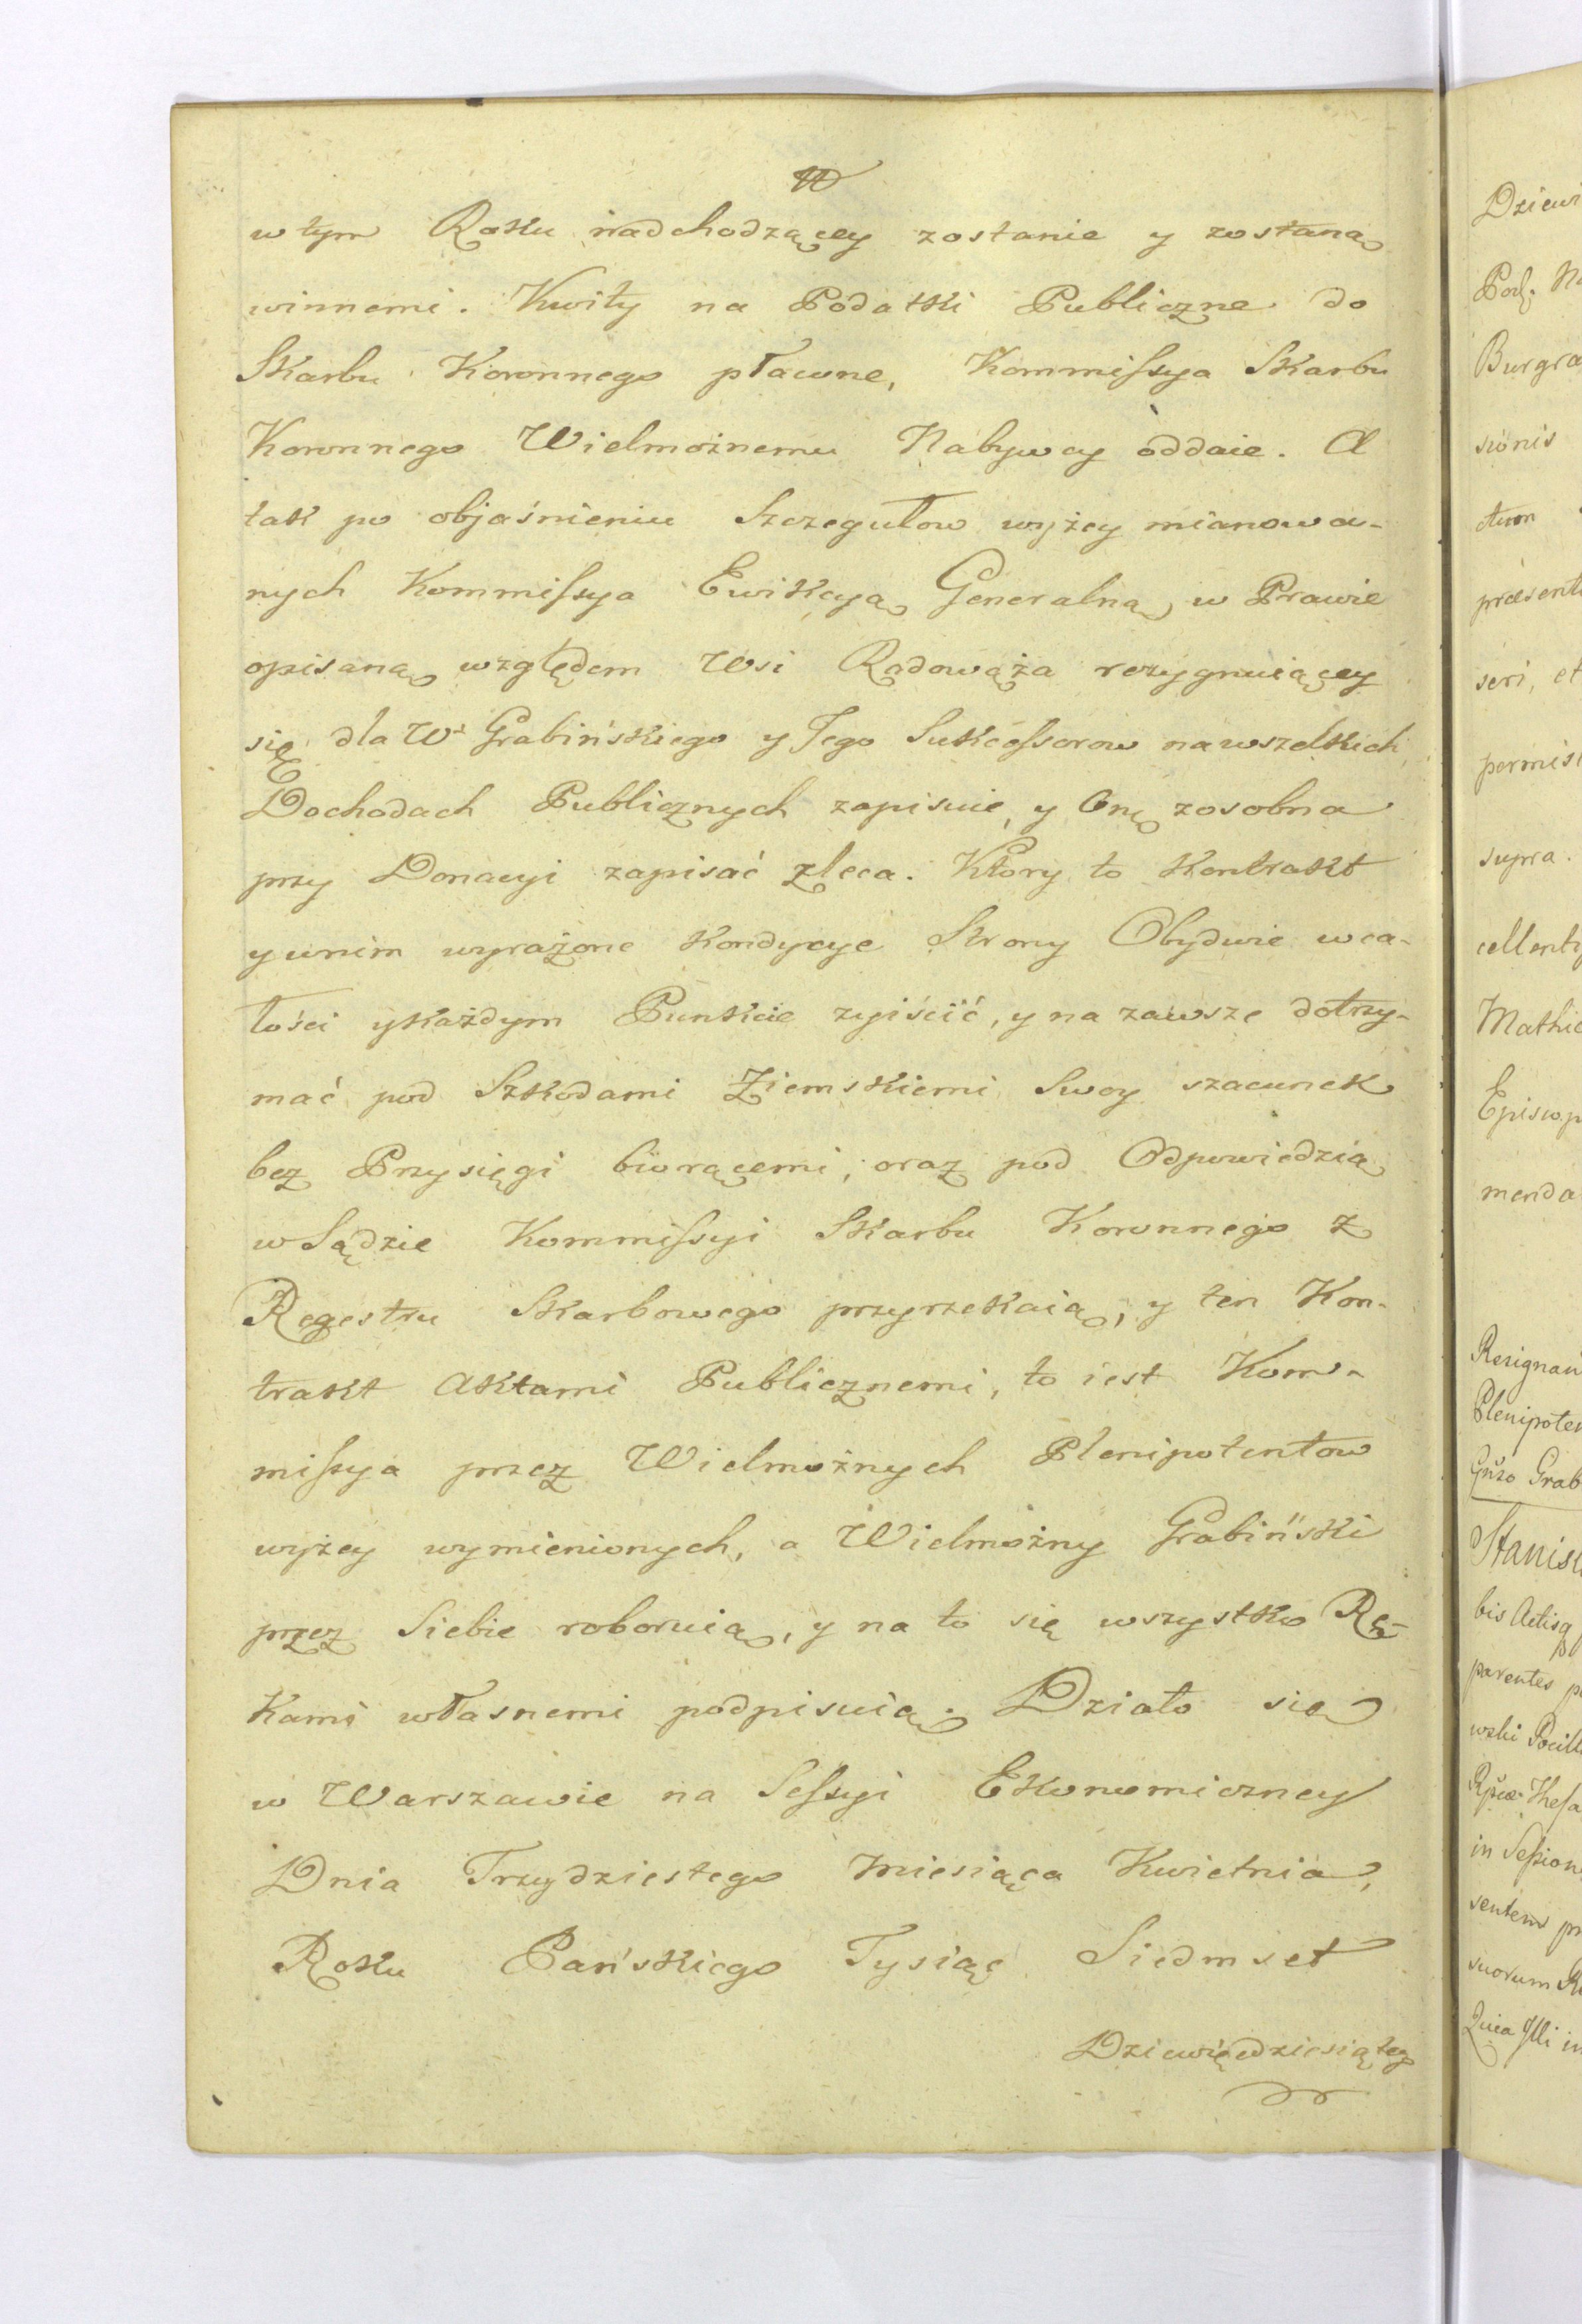 w tym Roku nadchodzącey zostanie y zostaną
winnemi. Kwity na Podatki Publiczne do
Skarbu Koronnego płacone, Kommissya Skarbu
Koronnego Wielmożnemu Nabywcy oddaie. A
tak po objaśnieniu Szczegułow wyżey mianowa-
nych Kommissya Ewikcyą Generalną w Prawie
opisaną względem Wsi Radowąża rezygnuiącey
się dla W. Grabińskiego y Jego Sukcessorow na wszelkich
Dochodach Publicznych zapisuie, y Onę zosobna
przy Donacyi zapisać zleca. Ktory to Kontrakt
y wnim wyrażone Kondycye Strony Obydwie wca-
łości y każdym Punkcie zyiścić, y na zawsze dotrzy-
mać pod Szkodami Ziemskiemi Swoy szacunek
bez Przysięgi biorącemi, oraz pod Odpowiedzią
w Sądzie Kommissyi Skarbu Koronnego z
Regestru Skarbowego przyrzekaią, y ten Kon-
trakt Aktami Publicznemi, to iest Kom-
missya przez Wielmożnych Plenipotentow
wyżey wymienionych, a Wielmożny Grabiński
przez Siebie roboruią, y na to się wszystko Rę-
kami własnemi podpisuią. Działo się
w Warszawie na Sessyi Ekonomiczney
Dnia Trzydziestego Miesiąca Kwietnia,
Roku Pańskiego Tysiąc Siedmset
Dziewięćdziesiątego
Dziewi
Burgra
sionis
præsent
seri, et
permis
supra.
cellent
Mathi
Episcop
menda
Resignan
Plenipoten
Grab
Stanis
parentes
in Session
suorum